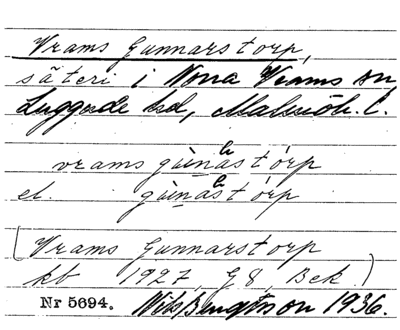 Vrams Gunnarstorp,
säteri i Norra Vrams sn
Luggude hd, Malmöh. l.
vrams gùnastórp
el. gùnastórp
(Vrams Gunnarstorp
kb 1927, G8, Bek)
Nr 5694. Nils Bengtsson 1936.